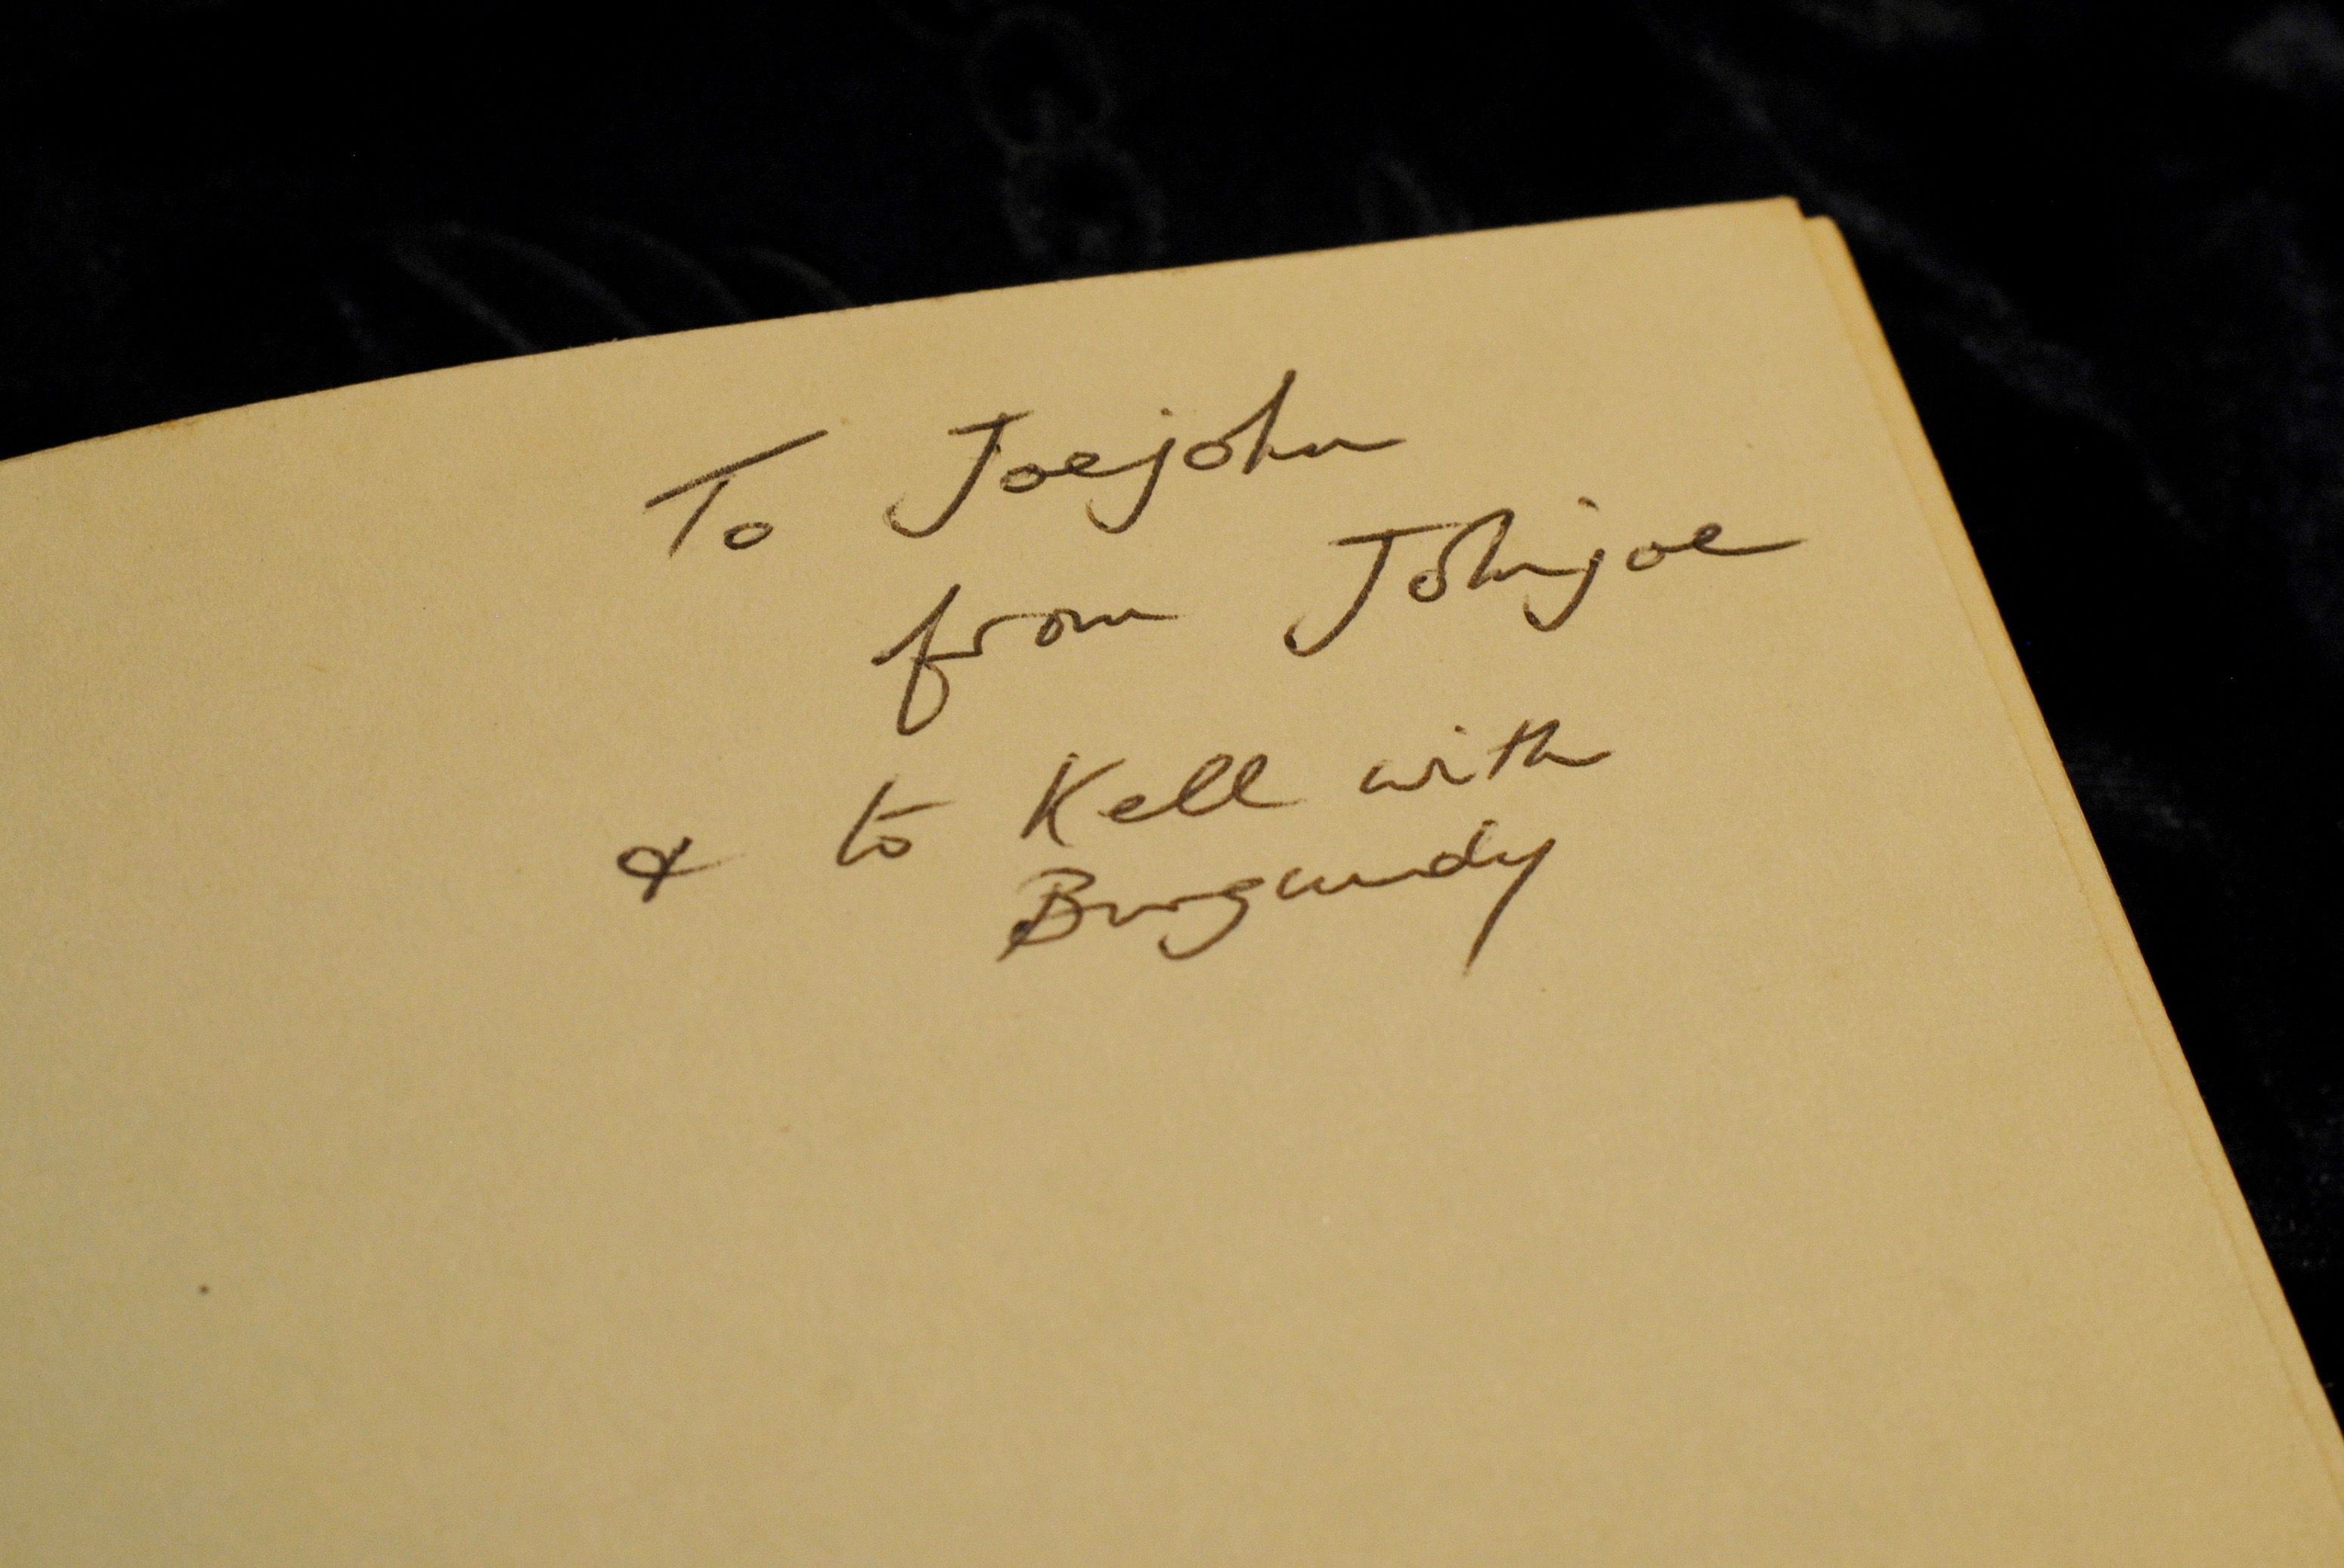 To Joejohn
from Johnjoe
& to Kell with
Burgundy